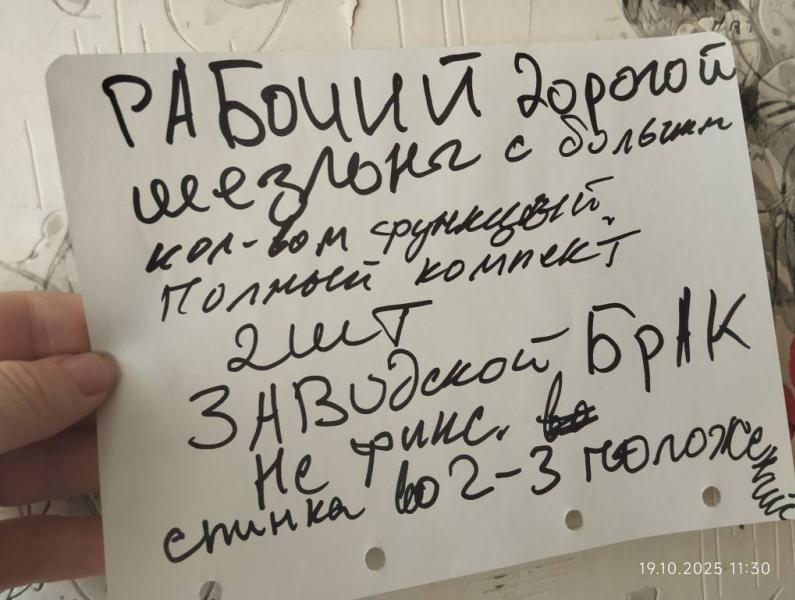 РАБОЧИЙ дорогой
шезлонг с большим
кол-вом функций.
Полный компект
2 шт
ЗАВОДской БрАК
Не фикс.
спинка во 2-3 положений
19.10.2025 11:30